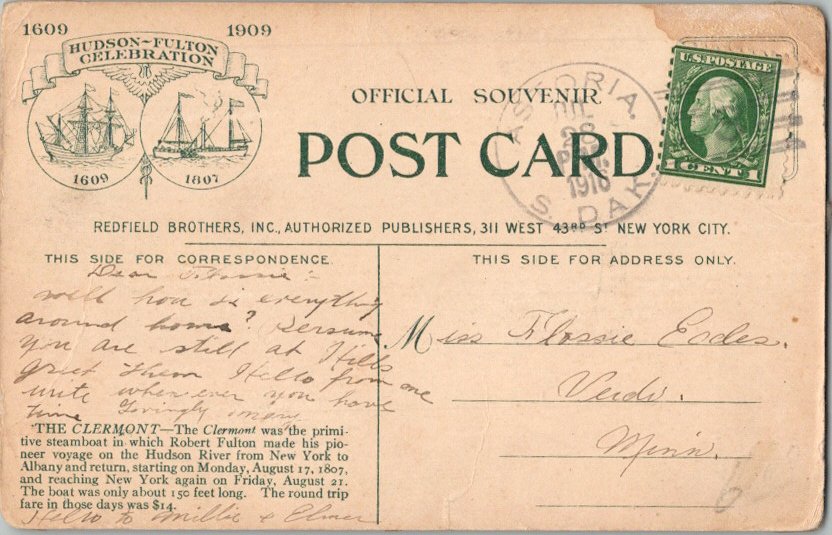 1609
1909
HUDSON~FULTON
CELEBRATION
1609
1807
OFFICIAL SOUVENIR
POST CARD
ASTORIA.
28
P.M.
S. DAK.
U.S. POSTAGE
1 CENT 1
REDFIELD BROTHERS, INC., AUTHORIZED PUBLISHERS, 311 WEST 43RD ST NEW YORK CITY.
THIS SIDE FOR CORRESPONDENCE.
THIS SIDE FOR ADDRESS ONLY.
Dear Flossie:-
well how is everything
around home? Persume
you are still at Hills
greet them Hello from me
write when ever you have
time Lovingly Mary
Miss Flossie
Verdi.
Minn.
THE CLERMONT—The Clermont was the primi-
tive steamboat in which Robert Fulton made his pio-
neer voyage on the Hudson River from New York to
Albany and return, starting on Monday, August 17, 1807,
and reaching New York again on Friday, August 21.
The boat was only about 150 feet long. The round trip
fare in those days was $14.
Hello to Millie & Elmer